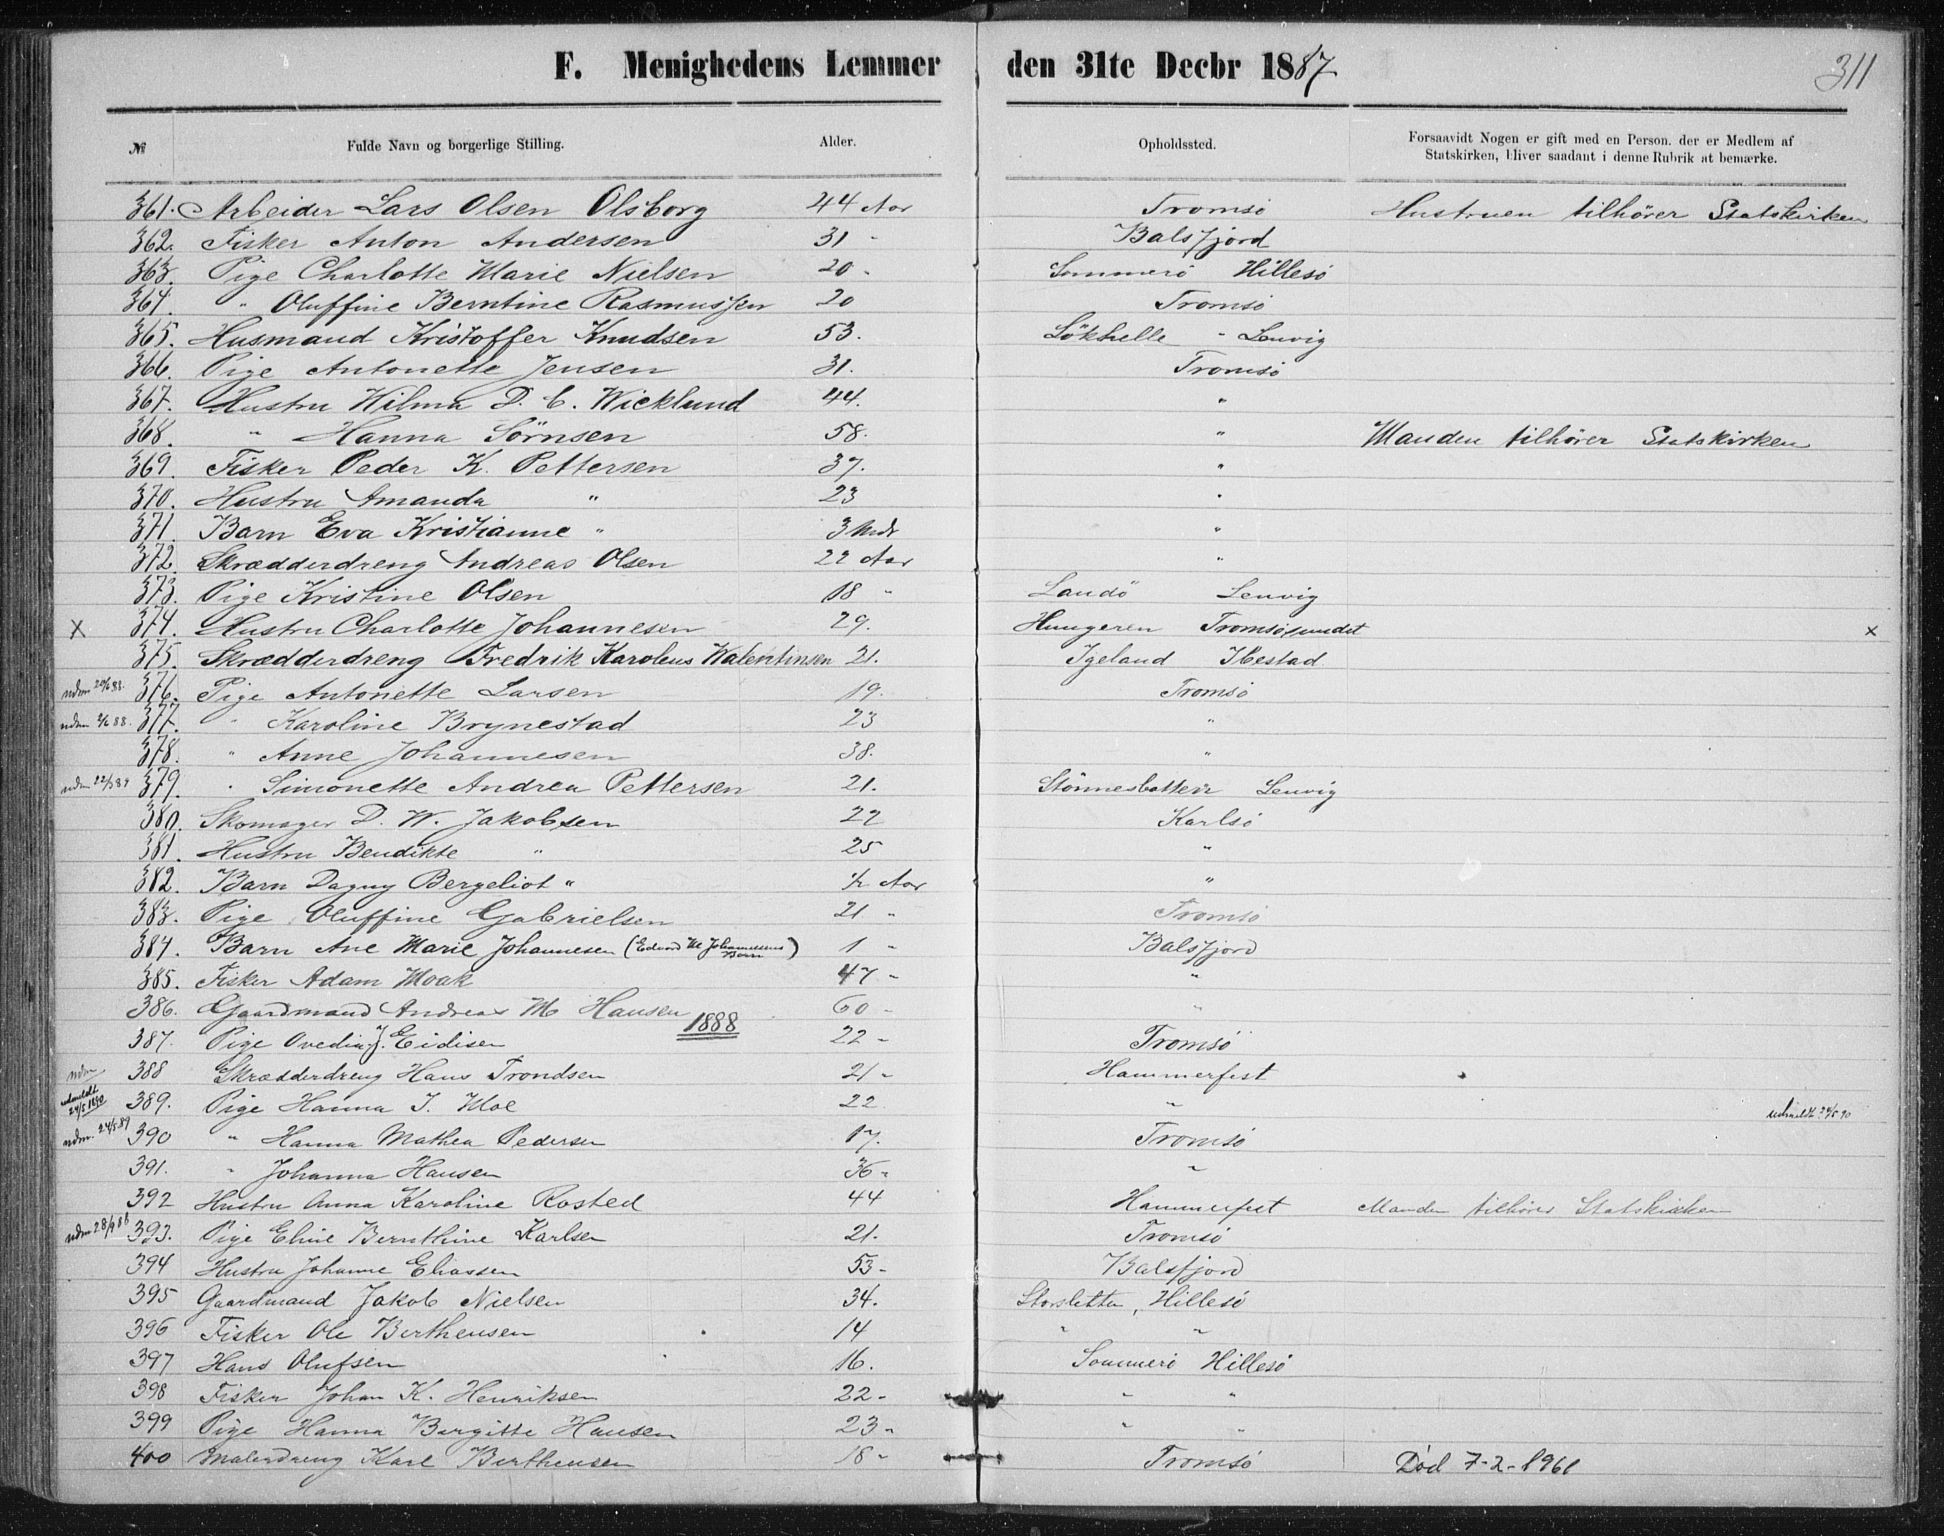 F. Menighedens Lemmer den 31te Decbr 1887. 311
№ Fulde Navn og borgerlige Stilling. Alder. Opholdssted. Forsaavidt Nogen er gift med en Person, der er Medlem af
Statskirken, bliver saadant i denne Rubrik at bemærke.
361. Arbeider Lars Olsen Olsborg 44 Aar Tromsö Hustruen tilhører Statskirken
362. Fisker Anton Andersen 31 " Balsfjord
363. Pige Charlotte Marie Nielsen 20 - Sommerö Hillesö
364. " Oluffine Berntine Rasmussen 20 Tromsö
365. Husmand Kristoffer Knudsen 53. - Lenvig
366. Pige Antonette Jensen 31. Tromsö
367. Hustru Wilma D. C. Wicklund 44. "
368. " Hanna Sörnsen 58. " Manden tilhører Statskirken
369. Fisker Peder K. Pettersen 37. "
370. Hustru Amanda " 23 "
371. Barn Eva Kristianne " 3 Mdr "
372. Skrædderdreng Andreas Olsen 22 Aar "
373. Pige Kristine Olsen 18 " Sandö Lenvig
x 374. Hustru Charlotte Johannesen 29. Hungeren Tromsösundet x
375. Skrædderdreng Fredrik Karolius Walentinsen 21. Igeland Ibestad
udm 20/6 88. 376. Pige Antonette Larsen 19. Tromsö
udm 2/6 88. 377. " Karoline Brynestad 23 "
378. " Anne Johannesen 38. "
udm 22/3 89 379. " Simonette Andrea Pettersen 21. Stönnesbotten Lenvig
380. Skomager D. W. Jakobsen 22 Karlsö
381. Hustru Bendikte " 25 "
382. Barn Dagny Bergeliot " ½ Aar "
383. Pige Oluffine Gabrielsen 21 " Tromsö
384. Barn Ane Marie Johannesen (Edvard M Johannesens Barn) 1 " Balsfjord
385. Fisker Adam Moak 47 - "
386. Gaardmand Andreas M Hansen 60 - "
1888
387. Pige Ovedia J. Eidisen 22 - Tromsö
udm 388 Skrædderdreng Hans Trondsen 21 - Hammerfest
udmeldt 24/5 1890 389. Pige Hanna J. Moe 22 " udmeldt 24/5 90
udm. 24/5 89 390 " Hanna Mathea Pedersen 17. Tromsö
391. " Johanna Hansen 36 - "
392 Hustru Anna Karoline Rosted 44 Hammerfest Manden tilhører Statskirken
udm 28/9 88 393. Pige Eline Bernthine Karlsen 21. Tromsö
394 Hustru Johanne Eliassen 53 - Balsfjord
395 Gaardmand Jakob Nielsen 34. Storsletten, Hillesö
396 Fisker Ole Berthensen 14 " "
397 Hans Olufsen 16. Sommerö Hillesö
398 Fisker Johan K. Henriksen 22 - " "
399 Pige Hanna Bergitte Hansen 23 - " "
400 Malerdreng Karl Berthensen 18 - Tromsö Död 7-2-1961